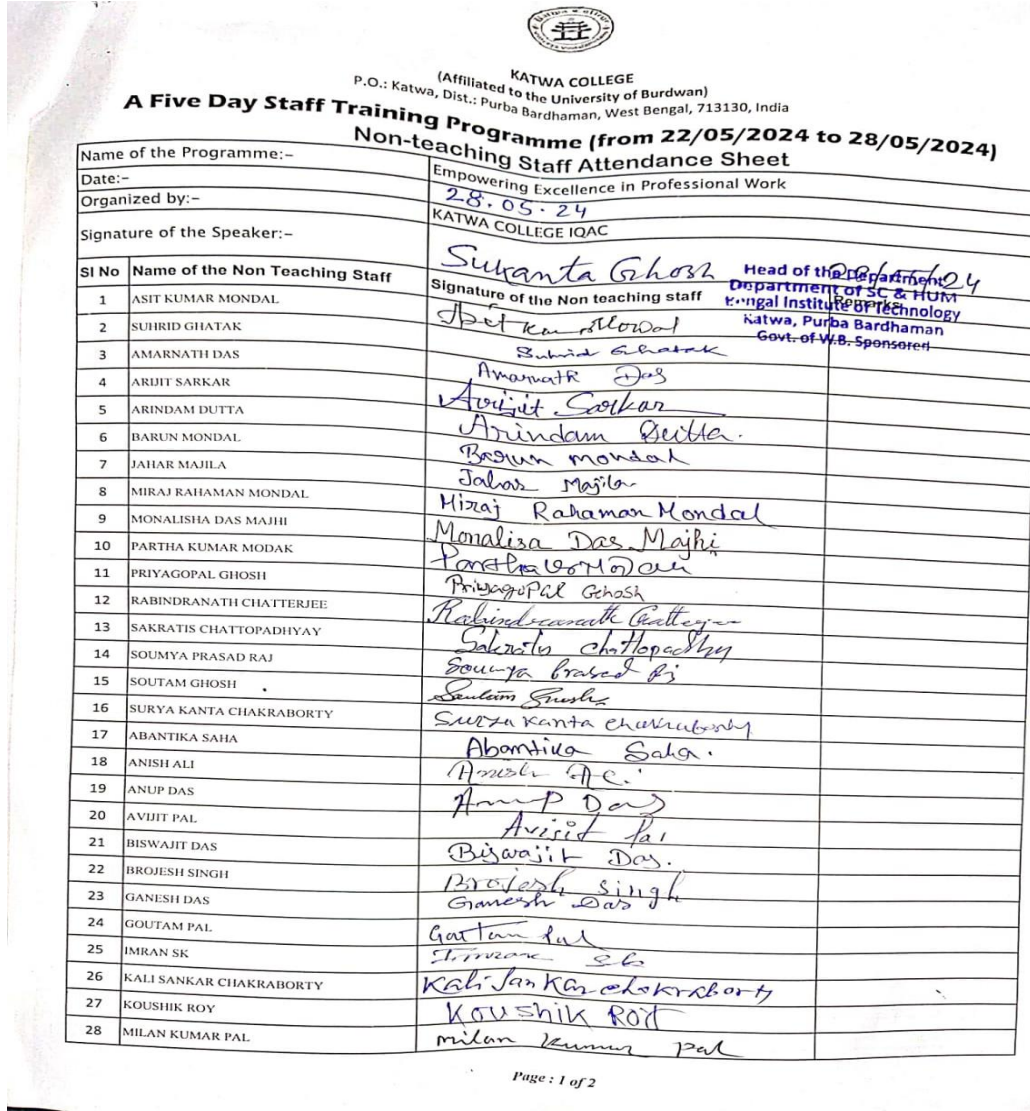 KATWA COLLEGE
(Affiliated to the University of Burdwan)
P.O.: Katwa, Dist.: Purba Bardhaman, West Bengal, 713130, India
A Five Day Staff Training Programme (from 22/05/2024 to 28/05/2024)
Non-teaching Staff Attendance Sheet
Name of the Programme:– Empowering Excellence in Professional Work
Date:– 28.05.24
Organized by:– KATWA COLLEGE IQAC
Signature of the Speaker:– Sukanta Ghosh
Head of the Department
Department of SC & HUM
Bengal Institute of Technology
Katwa, Purba Bardhaman
Govt. of W.B. Sponsored
Sl No Name of the Non Teaching Staff Signature of the Non teaching staff Remarks
1 ASIT KUMAR MONDAL
2 SUHRID GHATAK Suhrid Ghatak
3 AMARNATH DAS Amarnath Das
4 ARIJIT SARKAR Arijit Sarkar
5 ARINDAM DUTTA Arindam Dutta.
6 BARUN MONDAL Barun mondal
7 JAHAR MAJILA Jahar Majila
8 MIRAJ RAHAMAN MONDAL Miraj Rahaman Mondal
9 MONALISHA DAS MAJHI Monalisa Das Majhi
10 PARTHA KUMAR MODAK
11 PRIYAGOPAL GHOSH Priyagopal Ghosh
12 RABINDRANATH CHATTERJEE Rabindranath Chatterjee
13 SAKRATIS CHATTOPADHYAY Sakratis Chattopadhy
14 SOUMYA PRASAD RAJ Soumya Prasad Raj
15 SOUTAM GHOSH Soutam Ghosh
16 SURYA KANTA CHAKRABORTY Surya Kanta Chakraborty
17 ABANTIKA SAHA Abantika Saha.
18 ANISH ALI Anish Ali
19 ANUP DAS Anup Das
20 AVIJIT PAL Avijit Pal
21 BISWAJIT DAS Biswajit Das.
22 BROJESH SINGH Brojesh Singh
23 GANESH DAS Ganesh Das
24 GOUTAM PAL Goutam Pal
25 IMRAN SK Imran Sk
26 KALI SANKAR CHAKRABORTY Kali Sankar Chakraborty
27 KOUSHIK ROY Koushik Roy
28 MILAN KUMAR PAL milan kumar pal
Page : 1 of 2